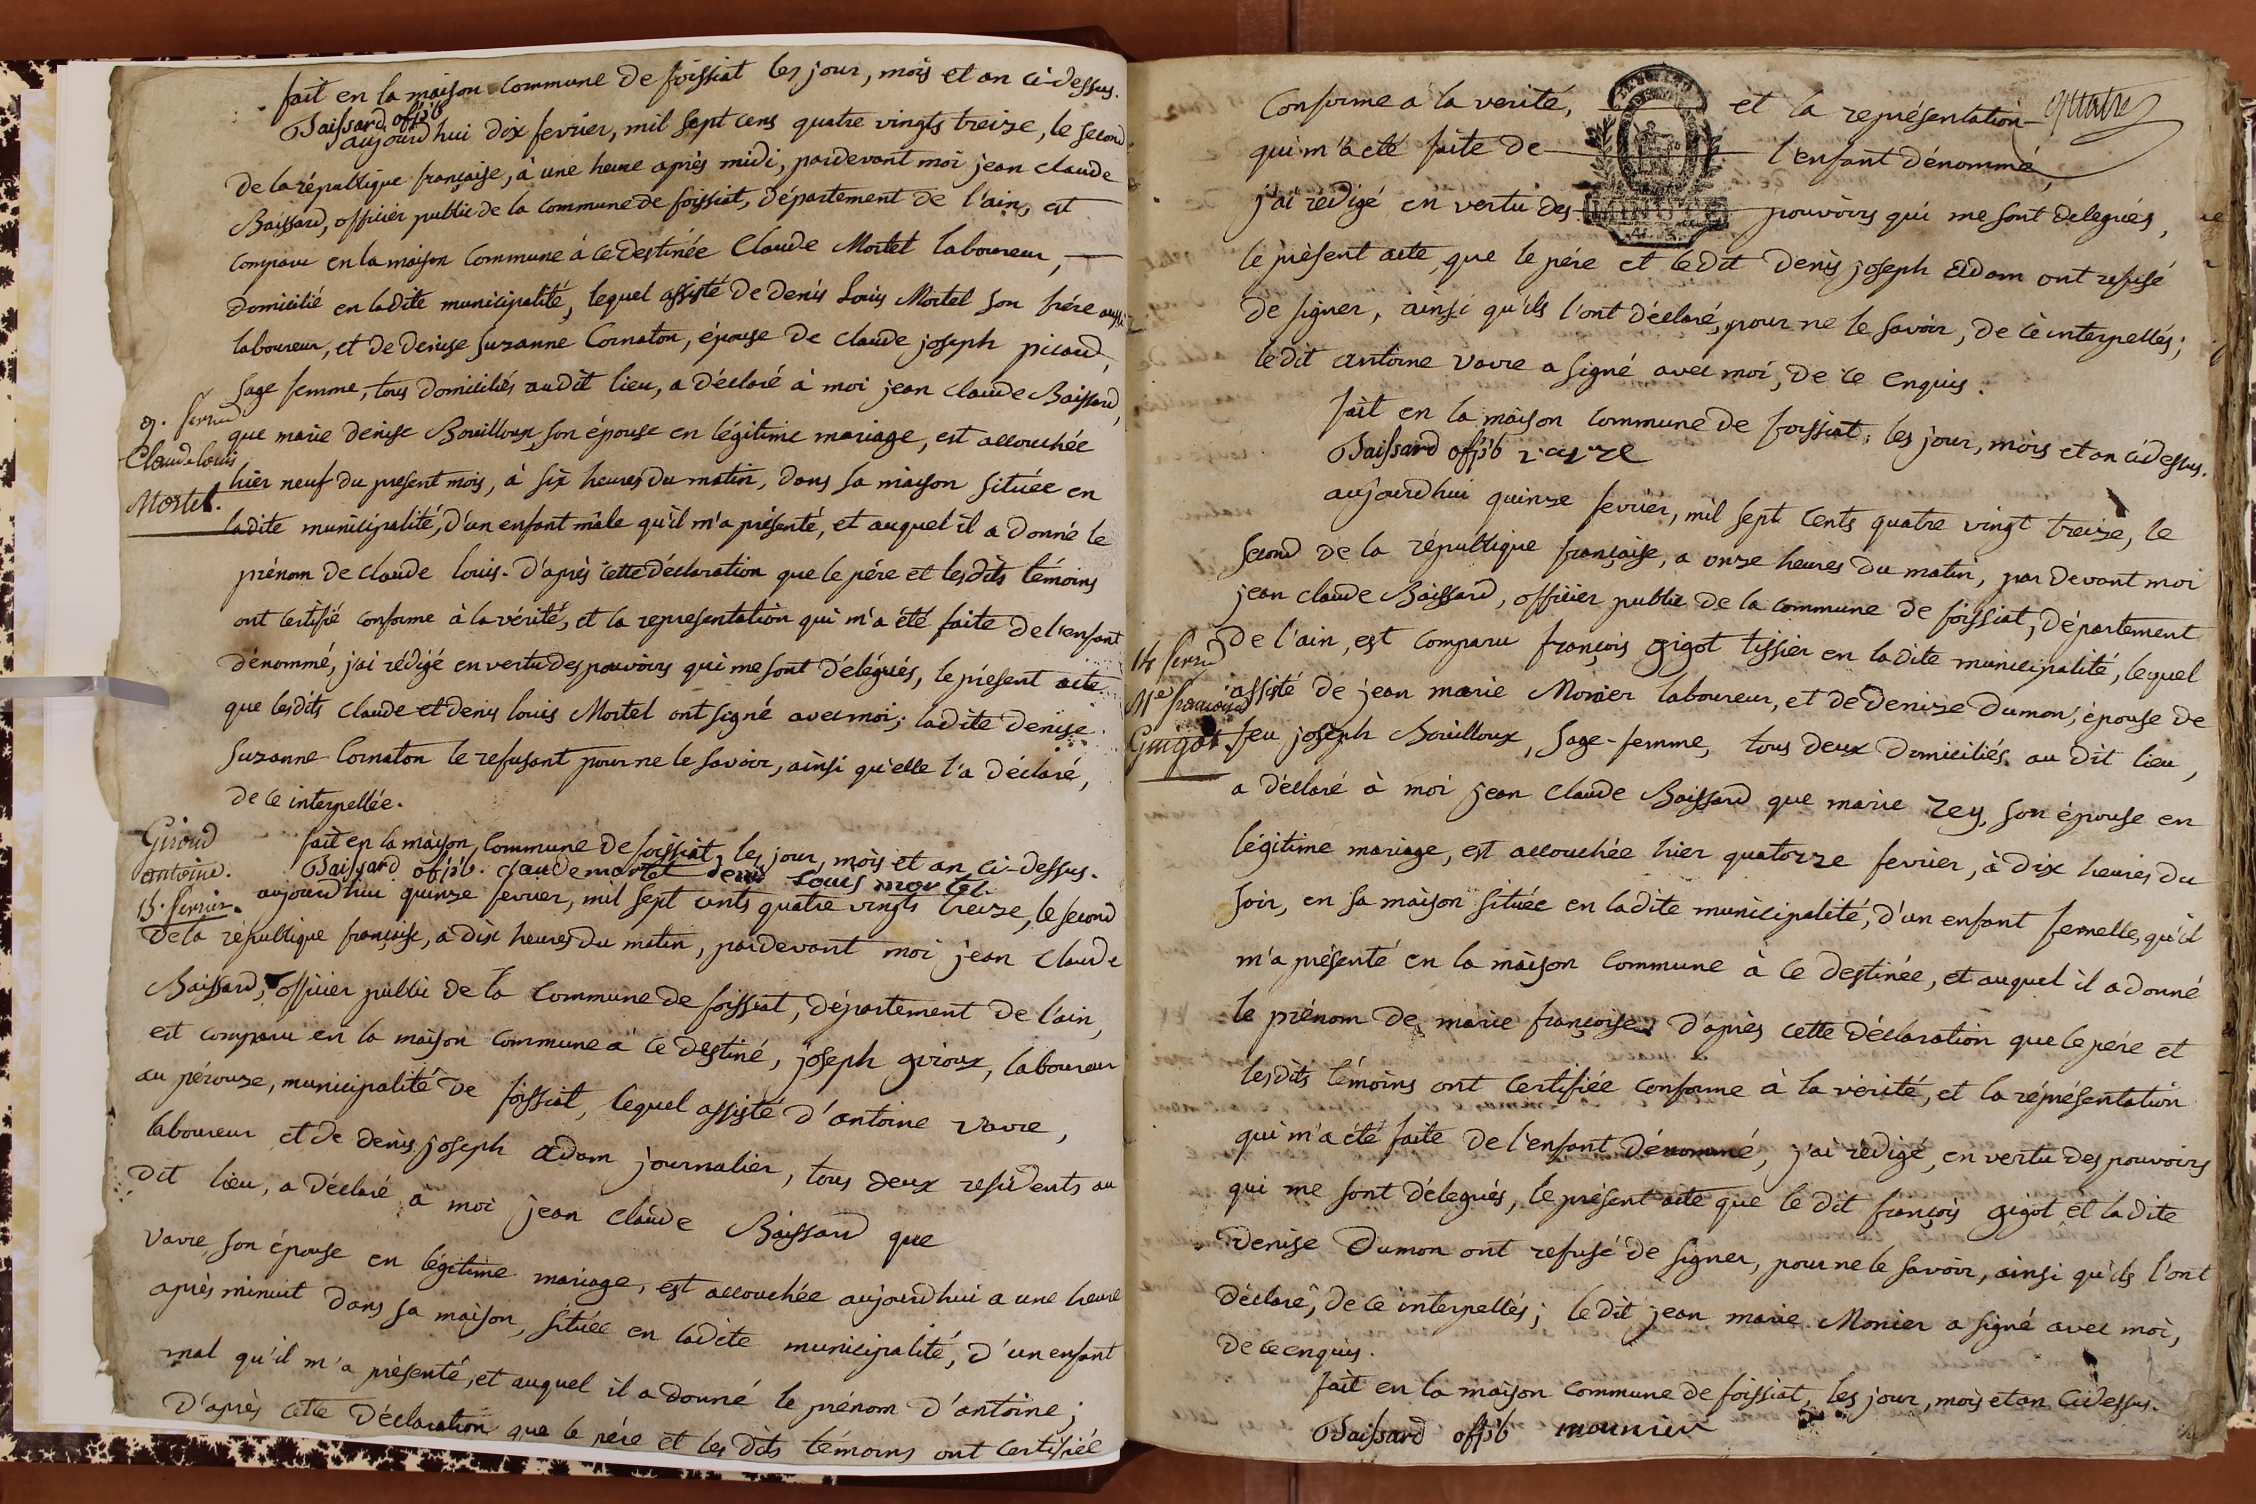 fait en la maison commune de foissiat les jour, mois et an ci-dessus.
Baissard off. pb
aujourdhui dix fevrier, mil sept cens quatre vingts treize, le second
de la république française, à une heure après midi, pardevant moi jean claude
Baissard, officier public de la commune de foissiat, département de l'ain, est
comparu en la maison commune à ce destinée Claude Mortel laboureur,
domicilié en ladite municipalité, lequel assisté de denis Louis Mortel son frére aussi
laboureur, et de denise Suzanne Cornaton, épouse de claude joseph picaud,
sage femme, tous domiciliés audit lieu, a déclaré à moi jean claude Baissard,
9. fevrier
Claude louis
Mortel.
que marie denise Bouilloux son épouse en légitime mariage, est accouchée
hier neuf du present mois, à six heures du matin, dans sa maison située en
ladite municipalité, d'un enfant mâle qu'il m'a présenté, et auquel il a donné le
prénom de claude louis. d'après cette déclaration que le pére et lesdits témoins
ont certifié conforme à la vérité, et la representation qui m'a été faite de l'enfant
dénommé, j'ai rédigé en vertu des pouvoirs qui me sont délégués, le présent acte
que lesdits claude et denis louis Mortel ont signé avec moi; ladite denise
Suzanne Cornaton le refusant pour ne le savoir, ainsi qu'elle l'a déclaré,
de ce interpellée.
fait en la maison commune de foissiat, les jour, mois et an ci-dessus.
Baissard off. pb. claude mortel denis louis mortel
Giroud
antoine.
15. fevrier.
aujourdhui quinze fevrier, mil sept cents quatre vingts treize, le second
de la république française, à dix heures du matin, pardevant moi jean claude
Baissard, officier public de la commune de foissiat, département de l'ain,
est comparu en la maison commune à ce destiné, joseph giroux, laboureur
au pérouze, municipalité de foissiat, lequel assisté d'antoine vavre,
laboureur et de denis joseph adam journalier, tous deux residents au
dit lieu, a déclaré à moi jean claude Baissard que
vavre son épouse en légitime mariage, est accouchée aujourdhui a une heure
après minuit dans sa maison, située en ladite municipalité, d'un enfant
mal qu'il m'a présenté, et auquel il a donné le prénom d'antoine;
d'après cette déclaration que le pére et les dits témoins ont certifiée
quatre
Conforme à la verité, et la représentation
qui m'a été faite de l'enfant dénommé,
j'ai rédigé en vertu des pouvoirs qui me sont delegués,
MINUTE
le présent acte, que le pére et ledit denis joseph adam ont refusé
de signer, ainsi qu'ils l'ont déclaré, pour ne le savoir, de ce interpellés;
ledit antoine vavre a signé avec moi, de ce enquis.
fait en la maison commune de foissiat, les jour, mois et an cidessus.
Baissard off. pb vavre
aujourdhui quinze fevrier, mil sept cents quatre vingt treize, le
second de la république française, a onze heures du matin, par devant moi
jean claude Baissard, officier public de la commune de foissiat, département
de l'ain, est comparu françois gigot tissier en ladite municipalité, lequel
14 fevrier
Me françoise
Guigot.
assisté de jean marie Monier laboureur, et de denize dumon, épouse de
feu joseph Bouilloux, sage-femme, tous deux domiciliés au dit lieu,
a déclaré à moi jean claude Baissard que marie rey, son épouse en
légitime mariage, est accouchée hier quatorze fevrier, à dix heures du
soir, en sa maison située en ladite municipalité, d'un enfant femelle, qu'il
m'a présenté en la maison commune à ce destinée, et auquel il a donné
le prénom de marie françoise. d'après cette déclaration que le pére et
lesdits témoins ont certifiée conforme à la vérité, et la réprésentation
qui m'a été faite de l'enfant dénommé, j'ai rédigé, en vertu des pouvoirs
qui me sont délegués, le présent acte que le dit françois gigot et ladite
Denise Dumon ont refusé de signer, pour ne le savoir, ainsi qu'ils l'ont
déclaré, de ce interpellés; ledit jean marie Monier a signé avec moi,
de ce enquis.
fait en la maison commune de foissiat, les jour, mois et an cidessus.
Baissard off. pb mounier